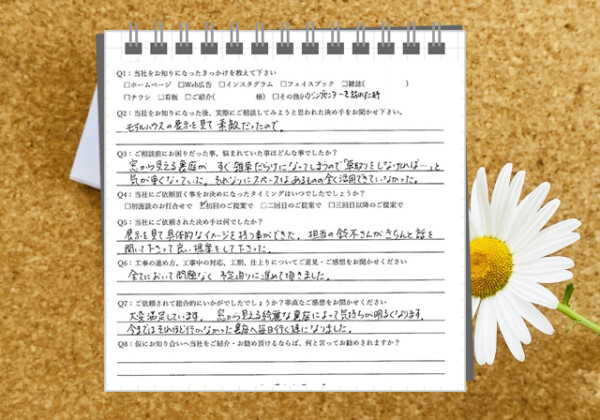 Q1：当社をお知りになったきっかけを教えて下さい
□ホームページ □Web広告 □インスタグラム □フェイスブック □雑誌( )
□チラシ □看板 □ご紹介( 様) □その他
Q2：当社をお知りになった後、実際にご相談してみようと思われた決め手をお聞かせ下さい。
モデルハウスの展示を見て素敵だったので。
Q3：ご相談前にお困りだった事、悩まれていた事はどんな事でしたか?
窓から見える裏庭が すぐ雑草だらけになってしまうので「草取りをしなければ…」と
気が重くなっていた。それなりにスペースはあるものの全く活用できていなかった。
Q4：当社にご依頼頂く事をお決めになったタイミングはいつでしたでしょうか?
□初面談のお打合せで ☑初回のご提案で □二回目のご提案で □三回目以降のご提案で
Q5：当社にご依頼された決め手は何でしたか?
展示を見て具体的なイメージを持つ事ができた。担当の鈴木さんがきちんと話を
聞いて下さって良い提案をして下さった。
Q6：工事の進め方、工事中の対応、工期、仕上りについてご意見・ご感想をお聞かせください
全てにおいて問題なく 予定通りに進めて頂きました。
Q7：ご依頼されて総合的にいかがでしたでしょうか?率直なご感想をお聞かせください
大変満足しています。 窓から見える綺麗な裏庭によって気持ちが明るくなります。
今まではそれほど行かなかった裏庭へ毎日行く様になりました。
Q8：仮にお知り合いへ当社をご紹介・お勧め頂けるならば、何と言ってお勧めされますか?